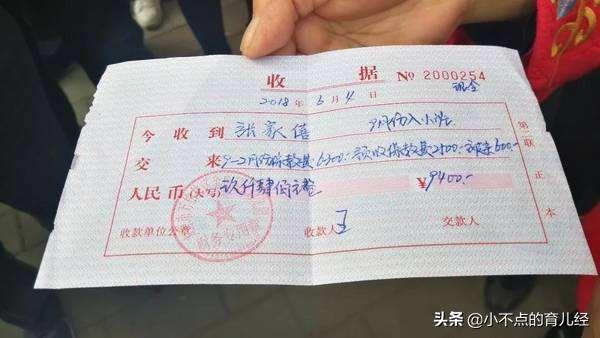 收 据 № 2000254
2018 年 3 月 4 日 现金
今 收 到 张家僖 9月份入小班
交 来 9-2月份保教费6300:- 预收保教费2500:- 600:-
人民币(大写)玖仟肆佰元整 ¥9400:-
收款单位公章 收款人 王 交款人
第二联正本
财务专用章
头条 @小不点的育儿经